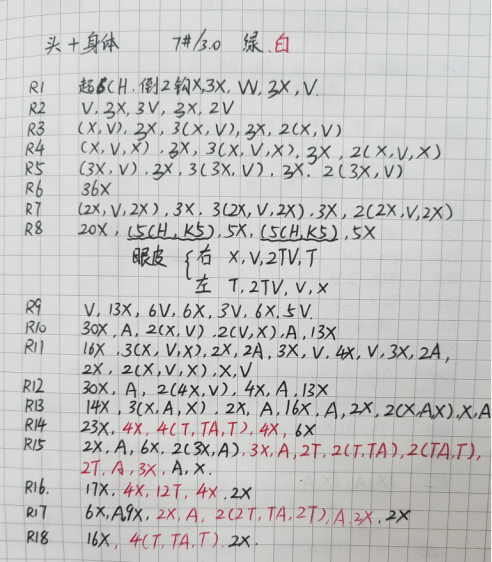 头+身体 7#/3.0 绿.白
R1 起6CH.倒2钩X,3X,W,3X,V.
R2 V,3X,3V,3X,2V
R3 (X,V),3X,3(X,V),3X,2(X,V)
R4 (X,V,X),3X,3(X,V,X),3X,2(X,V,X)
R5 (3X,V),3X,3(3X,V),3X.2(3X,V)
R6 36X
R7 (2X,V,2X),3X.3(2X,V,2X),3X,2(2X,V,2X)
R8 20X,(5CH,K5),5X,(5CH,K5),5X
眼皮 { 右 X,V,2TV,T
左 T,2TV,V,X
R9 V,13X,6V,6X,3V,6X,5V.
R10 30X,A,2(X,V).2(V,X),A,13X
R11 16X.3(X,V,X),2X,2A,3X,V.4X,V,3X,2A,
2X,2(X,V,X),X,V
R12 30X,A,2(4X,V),4X,A,13X
R13 14X,3(X,A,X).2X,A,16X,A,2X,2(X,A,X),X,A
R14 23X,4X,4(T,TA,T),4X,6X
R15 2X,A,6X,2(3X,A),3X,A,2T,2(T,TA),2(TA,T),
2T,A,3X,A,X.
R16. 17X,4X,12T,4X,2X
R17 6X,A,9X,2X,A,2(2T,TA,2T),A.2X,2X
R18 16X,4(T,TA,T).2X.